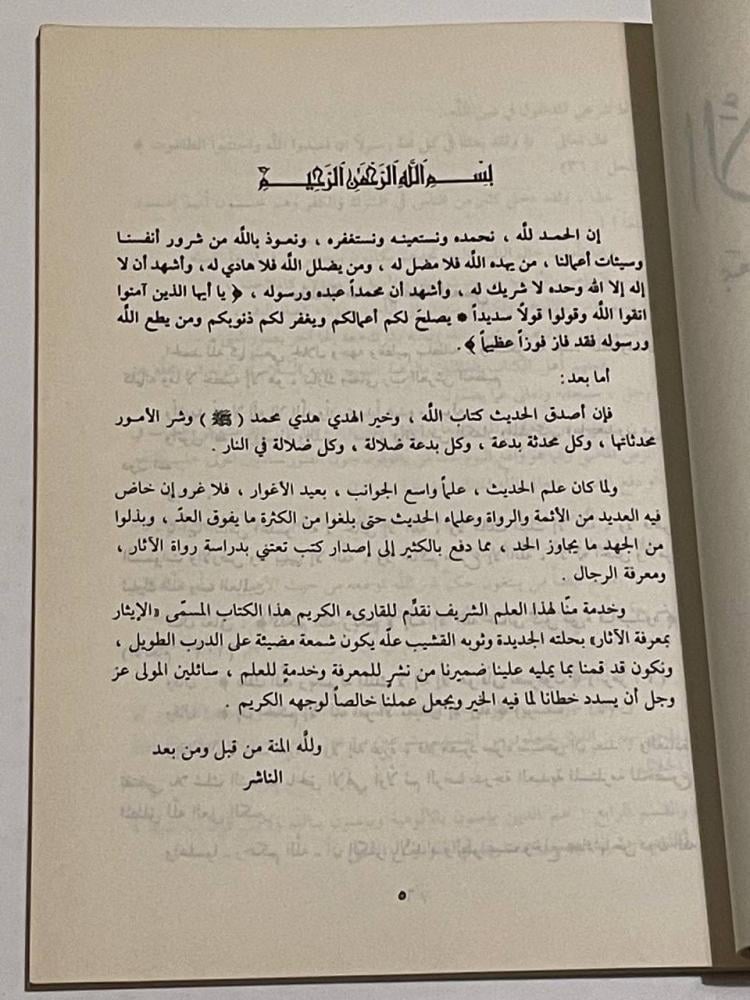 بسم الله الرحمن الرحيم
إن الحمد لله ، نحمده ونستعينه ونستغفره ، ونعوذ بالله من شرور أنفسنا
وسيئات أعمالنا ، من يهده الله فلا مضل له ، ومن يضلل الله فلا هادي له، وأشهد أن لا
إله إلا الله وحده لا شريك له ، وأشهد أن محمداً عبده ورسوله ، ﴿ يا أيها الذين آمنوا
اتقوا الله وقولوا قولاً سديداً * يصلح لكم أعمالكم ويغفر لكم ذنوبكم ومن يطع الله
ورسوله فقد فاز فوزاً عظيماً ﴾.
أما بعد:
فإن أصدق الحديث كتاب الله ، وخير الهدي هدي محمد ( ﷺ ) وشر الأمور
محدثاتها ، وكل محدثة بدعة ، وكل بدعة ضلالة ، وكل ضلالة في النار .
ولما كان علم الحديث ، علماً واسع الجوانب ، بعيد الأغوار ، فلا غرو إن خاض
فيه العديد من الأئمة والرواة وعلماء الحديث حتى بلغوا من الكثرة ما يفوق العدّ ، وبذلوا
من الجهد ما يجاوز الحد ، مما دفع بالكثير إلى إصدار كتب تعتني بدراسة رواة الآثار ،
ومعرفة الرجال .
وخدمة منّا لهذا العلم الشريف نقدَّم للقارىء الكريم هذا الكتاب المسمّى «الإيثار
بمعرفة الآثار» بحلته الجديدة وثوبه القشيب علّه يكون شمعة مضيئة على الدرب الطويل ،
ونكون قد قمنا بما يمليه علينا ضميرنا من نشرٍ للمعرفة وخدمةٍ للعلم ، سائلين المولى عز
وجل أن يسدد خطانا لما فيه الخير ويجعل عملنا خالصاً لوجهه الكريم .
ولله المنة من قبل ومن بعد
الناشر
٥